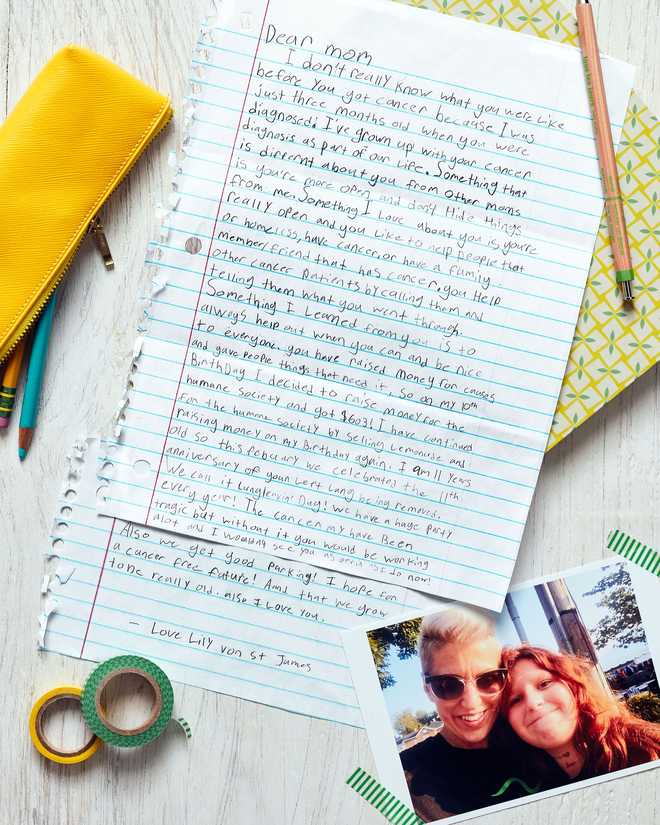 Dear mom
I don't really know what you were like
before you got cancer because I was
just three months old when you were
diagnosed! I've grown up with your cancer
diagnosis as part of our life. Something that
is differnt about you from other moms
is you're more open and don't Hide things
from me. Something I Love about you is you're
really open and you Like to help people that
or homeless, have cancer, or have a family
member/friend that has cancer. you Help
other cancer patients by calling them and
telling them what you went through.
Something I Learned from you is to
always help out when you can and be Nice
to everyone. you have raised Money for causes
and gave people things that need it. So on my 10th
BirthDay I decided to raise money for the
humane Society and got $603! I have continued
for the humane society by selling Lemonade and
raising money on my Birthday again. I am 11 years
old so this febuary we celebrated the 11th
anniversary of your Left Lung being removed,
We call it Lungleavin' Day! We have a huge party
every year! The cancer my have Been
tragic but without it you would be working
alot and I wouldnt see you as much as I do now!
Also we get good parking! I hope for
a cancer free future! And that we grow
to be really old. also I Love you.
- Love Lily von St James